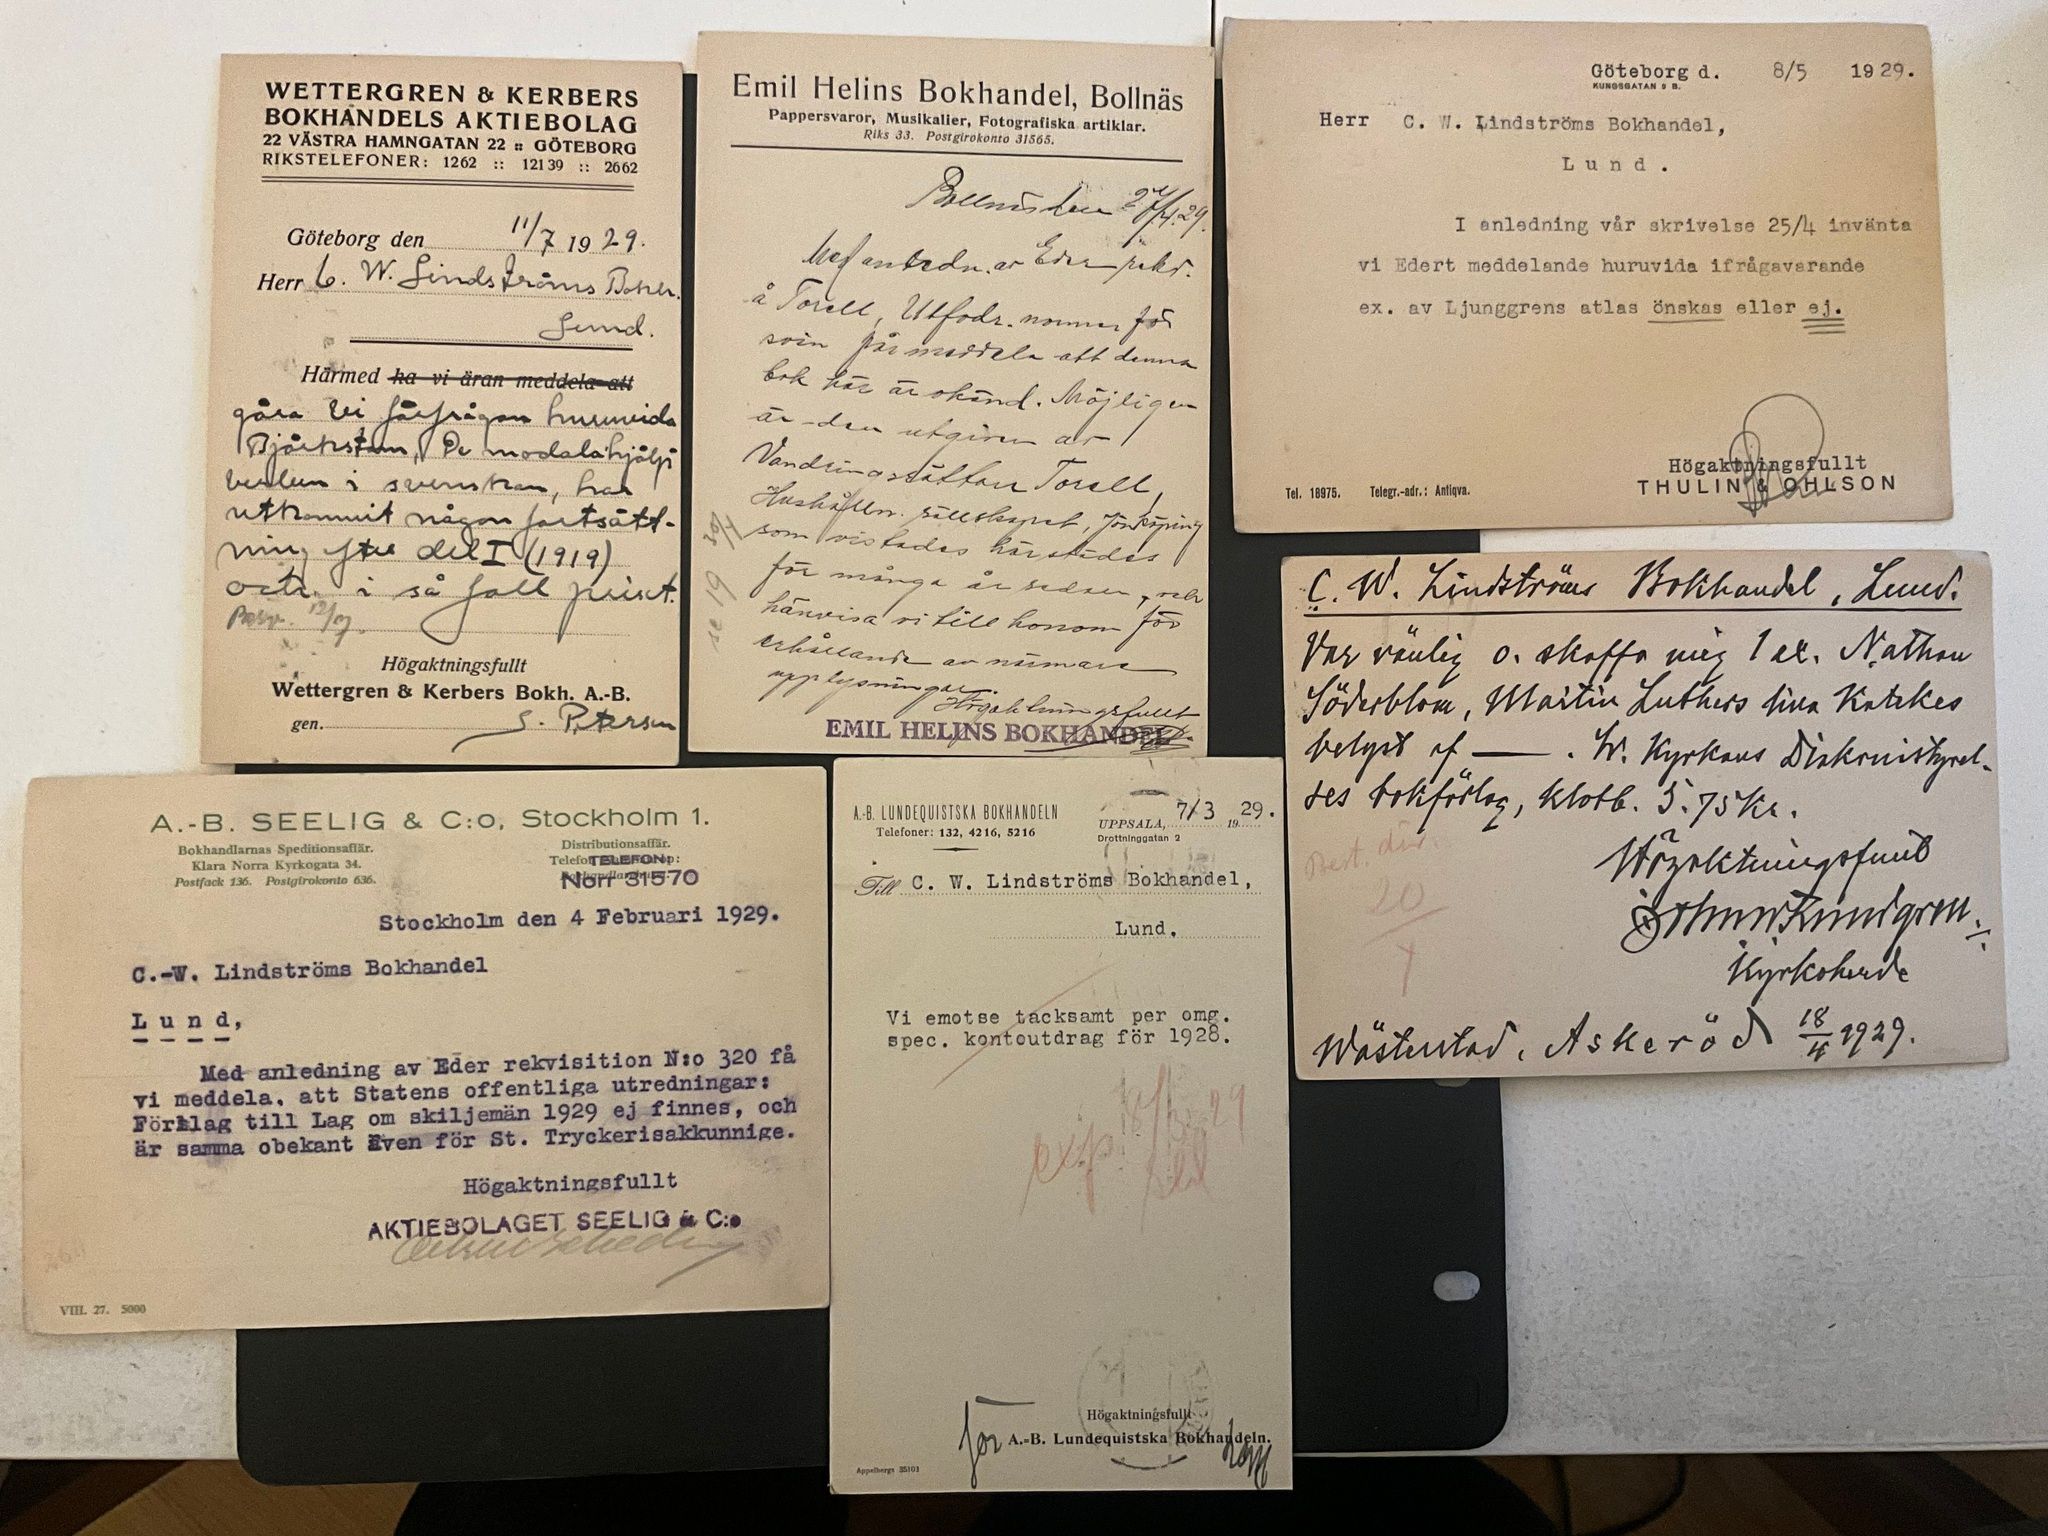 WETTERGREN & KERBERS
BOKHANDELS AKTIEBOLAG
22 VÄSTRA HAMNGATAN 22 :: GÖTEBORG
RIKSTELEFONER: 1262 :: 12139 :: 2662
Göteborg den 11/7 1929.
Herr C. W. Lindströms Bokh.
Lund.
Härmed ha vi äran meddela att
göra vi förfrågan huruvida
Björkstam, De modala hjälp
verben i svenskan, har
utkommit någon fortsätt-
ning efter del I (1919)
och i så fall priset.
Besv. 12/7.
Högaktningsfullt
Wettergren & Kerbers Bokh. A.-B.
gen. S. Petersen
Emil Helins Bokhandel, Bollnäs
Pappersvaror, Musikalier, Fotografiska artiklar.
Riks 33. Postgirokonto 31565.
Bollnäs den 27/4.29.
Med anledn. av Eder rekv.
å Torell, Utfodr. normer för
svin få meddela att denna
bok här är okänd. Möjligen
är den utgiven av
Vandringsrättare Torell,
Hushålln. sällskapet, Jönköping
som vistades härstädes
för många år sedan, och
hänvisa vi till honom för
erhållande av närmare
upplysningar.
Högaktningsfullt
EMIL HELINS BOKHANDEL
30/4
se 19
Göteborg d. 8/5 1929.
KUNGSGATAN 9 B.
Herr C. W. Lindströms Bokhandel,
Lund.
I anledning vår skrivelse 25/4 invänta
vi Edert meddelande huruvida ifrågavarande
ex. av Ljunggrens atlas önskas eller ej.
Högaktningsfullt
THULIN & OHLSON
Tel. 18975. Telegr.-adr.: Antiqva.
C. W. Lindströms Bokhandel, Lund.
Var vänlig o. skaffa mig 1 ex. Nathan
Söderblom, Martin Luthers lilla Katekes
belyst af — . Sv. Kyrkans Diakonistyrel-
ses bokförlag, klotb. 5.75 kr.
Best. dir.
20
4
Högaktningsfullt
Kyrkoherde
Wästerstad, Askeröd 18/4 1929.
A.-B. SEELIG & C:o, Stockholm 1.
Bokhandlarnas Speditionsaffär.
Klara Norra Kyrkogata 34.
Postfack 136. Postgirokonto 636.
Distributionsaffär.
TELEFON:
Norr 31570
Stockholm den 4 Februari 1929.
C.-W. Lindströms Bokhandel
Lund,
Med anledning av Eder rekvisition N:o 320 få
vi meddela. att Statens offentliga utredningar:
Förslag till Lag om skiljemän 1929 ej finnes, och
är samma obekant även för St. Tryckerisakkunnige.
Högaktningsfullt
AKTIEBOLAGET SEELIG & C:o
VIII. 27. 5000
A.-B. LUNDEQUISTSKA BOKHANDELN
Telefoner: 132, 4216, 5216
UPPSALA, 7/3 1929.
Drottninggatan 2
Till C. W. Lindströms Bokhandel,
Lund.
Vi emotse tacksamt per omg.
spec. kontoutdrag för 1928.
exp. 18/3 29
Högaktningsfullt
för A.-B. Lundequistska Bokhandeln.
Appelbergs 35101